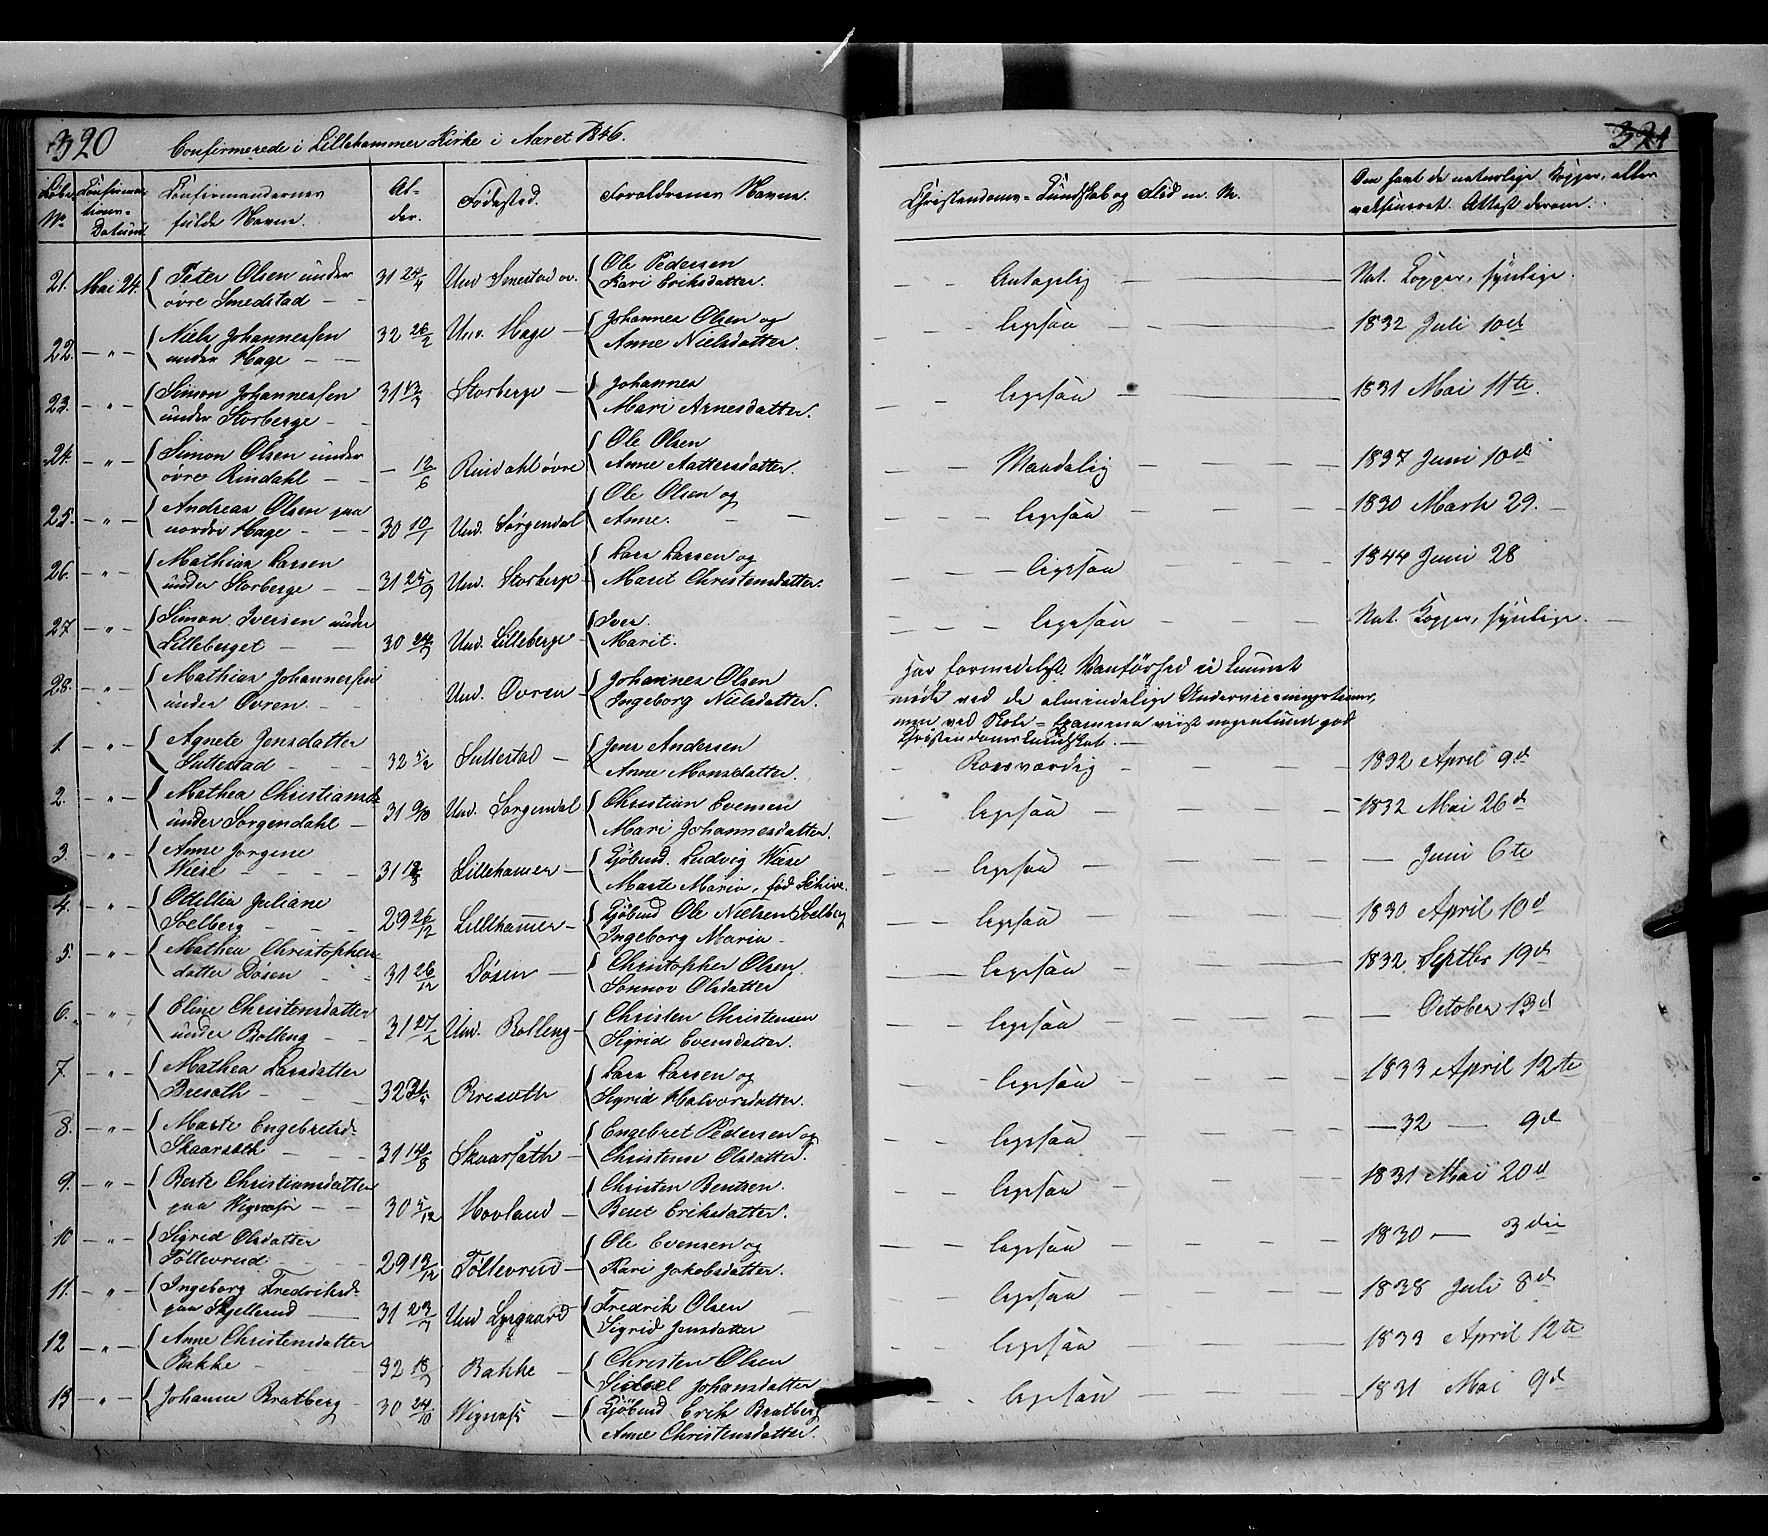 320
Confirmerede i Lillehammer Kirke i Aaret 1846.
Løbe No
Confirmationens Datum
Confirmandernes fulde Navne.
Alder.
Fødested.
Forældrenes Navne.
21. Mai 24. Peter Olsen under øvre Smedstad — 31 24/4 Und. Smestad øv. Ole Pedersen Kari Eriksdatter.
22. — " — Niels Johannessen under Hage — — 32 26/2 Und. Hage — Johannes Olsen og Anne Nielsdatter.
23. — " — Simon Johannessen under Storberge — 31 13/3 Storberge — Johannes Mari Arnesdatter.
24. — " — Simon Olsen under øvre Rindahl — — 12/6 Rindahl øvre Ole Olsen Anne
25. — " — Andreas Olsen paa nordre Hage — 30 10/1 Und. Sørgendal Ole Olsen og Anne. — —
26. — " — Mathias Larsen under Storberge — 31 25/9 Und. Storberge Lars Larsen og Marit Christensdatter.
27 — " — Simon Iversen under Lilleberget — — 30 Und. Lilleberge — Iver Marit.
28. — " — Mathias Johannessen under Ovren. — Und. Ovren — Johannes Olsen Ingeborg Nielsdatter.
1. — " — Agnete Jensdatter Suttestad — 32 5/2 Suttestad — Jens Andersen Anne Monsdatter.
2. — " — Mathea Christiansd. under Sørgendahl — 31 9/10 Und. Sørgendal Christian Evensen Mari Johannesdatter.
3. — " — Anne Jørgene Wiese — — 31 Lillehamer — Kjøbmd. Ludvig Wiese Marte Maria, fød Schive.
4. — " — Ottellia Juliane Solberg — — 29 26/12 Lillehamer — Kjøbmd Ole Nielsen Solberg Ingeborg Maria —
5. — " — Mathea Christophersdatter Døsen — 31 26/12 Døsen — Christopher Olsen. Sønnov Olsdatter
6. — " — Eline Christensdatter under Rolleng — 31 27/2 Und. Rolleng — Christen Christensen Sigrid Evensdatter.
7. — " — Mathea Larsdatter Bresæth — 32 Bresæth Lars Larsen og Sigrid Halvorsdatter.
8. — " — Marte Engebretsd. Skaarsæth — — 31 14/8 Skaarsæth — Engebret Pedersen og Christense Olsdatter.
9. — " — Berte Christiansdatter paa Wignæs — — 30 5/12 Hovland — Christen Bentsen. Beret Eriksdatter.
10 — " — Sigrid Olsdatter Tøllevrud — 29 Tøllevrud — Ole Evensen og Kari Jakobsdatter.
11. — " — Ingeborg Fredriksd. paa Skjellerud — 31 23/7 Und Lysgaard Fredrik Olsen Sigrid Jensdatter
12 — " — Anne Christensdatter Bakke — 32 18/9 Bakke — Christen Olsen Sidsel Johansdatter
13 — " — Johanne Bratberg — 30 24/10 Wignæs — Kjøbmd. Erik Bratberg Anne Christensdatter.
321
Christendoms-Kundskab og Flid m. M.
Om havt de naturlige Kopper, eller vakcineret. Attest derom.
— — Antagelig — — Nat. Kopper, synlige.
— — ligesaa — — 1832 Juli 10de
— — ligesaa — — 1831 Mai 11te.
— — Maadelig — — 1837 Juni 10de
— — ligesaa — — 1830 Marts 29.
— — ligesaa — — 1844 Juni 28
— — ligesaa — — Nat. Kopper, synlige.
Har formedelst Vanførhed ei kunnet
møde ved de almindelige Underviisningstimer,
men ved Skole-Examena viist nogenlunde god
Christendomskundskab. —
— Roesværdig — — 1832 April 9de
— ligesaa — — 1832 Mai 26de
— ligesaa — — Juni 6te
— ligesaa — — 1830 April 10de
— ligesaa — — 1832 Septbr 19de
— ligesaa — — October 13de
— ligesaa — — 1833 April 12te
— ligesaa — — 32 — 9de
— ligesaa — — 1831 Mai 20de
— ligesaa — — 1830 — 3die
— ligesaa — — 1838 Juli 8de
— ligesaa — — 1833 April 12te
— ligesaa — — 1831 Mai 9de